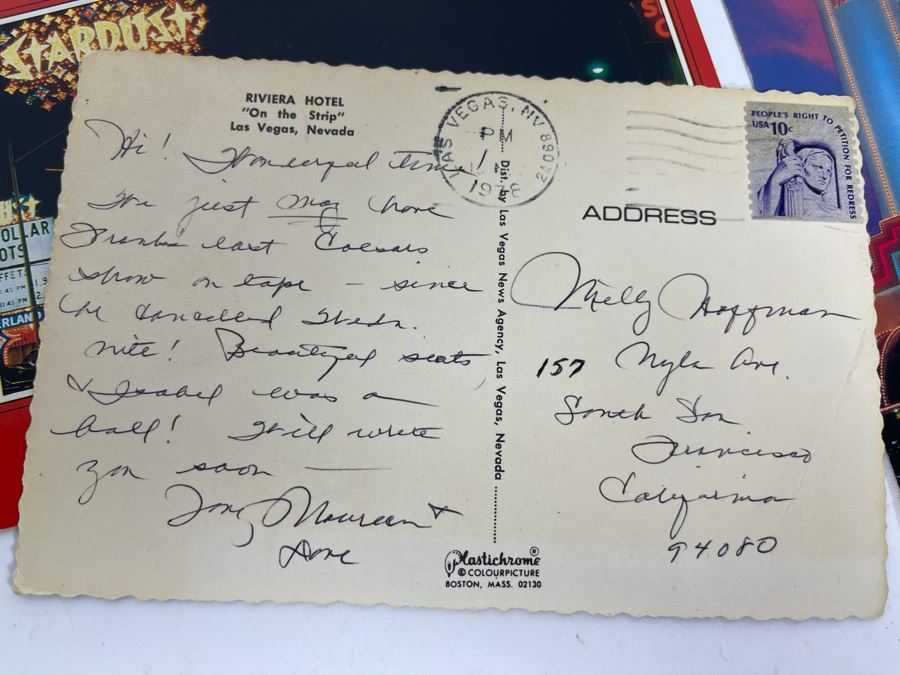 STARDUST
RIVIERA HOTEL
"On the Strip"
Las Vegas, Nevada
Hi! Wonderful time
We just may have
Franks last Caesars
show on tape – since
he cancelled Weds.
nite! Beautiful seats
& Isabel was a
ball! Will write
you soon —
Tony Maureen &
Dave
LAS VEGAS, NV
PM
PEOPLE'S RIGHT TO PETITION FOR REDRESS
USA 10c
ADDRESS
Hoffman
157 Nyla Ave.
South San
Francisco
California
94080
Dist. by Las Vegas News Agency, Las Vegas, Nevada
Plastichrome®
© COLOURPICTURE
BOSTON, MASS. 02130